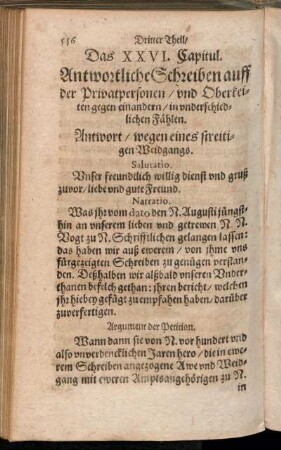 536 Dritter Theil/
Das XXVI. Capitul.
Antwortliche Schreiben auff
der Privatpersonen / vnd Oberkei-
ten gegen einandern / in vnderschied-
lichen Fählen.
Antwort / wegen eines streiti-
gen Weidgangs.
Salutatio.
Vnser freundtlich willig dienst vnd gruß
zuvor / liebe vnd gute Freund.
Narratio.
Was jhr vom dato den N. Augusti jüngst-
hin an vnserem lieben vnd getrewen N. N.
Vogt zu N. Schrifftlichen gelangen lassen:
das haben wir auß ewerem / von jhme vns
fürgezeigten Schreiben zu genügen verstan-
den. Deßhalben wir alßbald vnseren Vnder-
thanen befelch gethan: jhren bericht / welchen
jhr hiebey gefügt zu empfahen haben / darüber
zuverfertigen.
Argument der Petition.
Wann dann sie von N. vor hundert vnd
also vnverdencklichen Jaren hero / die in ewe-
rem Schreiben angezogene Awe vnd Weid-
gang mit eweren Amptsangehörigen zu N.
in